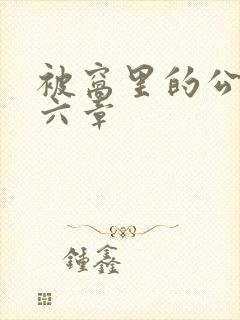 被窝里的公
六章
锺鑫